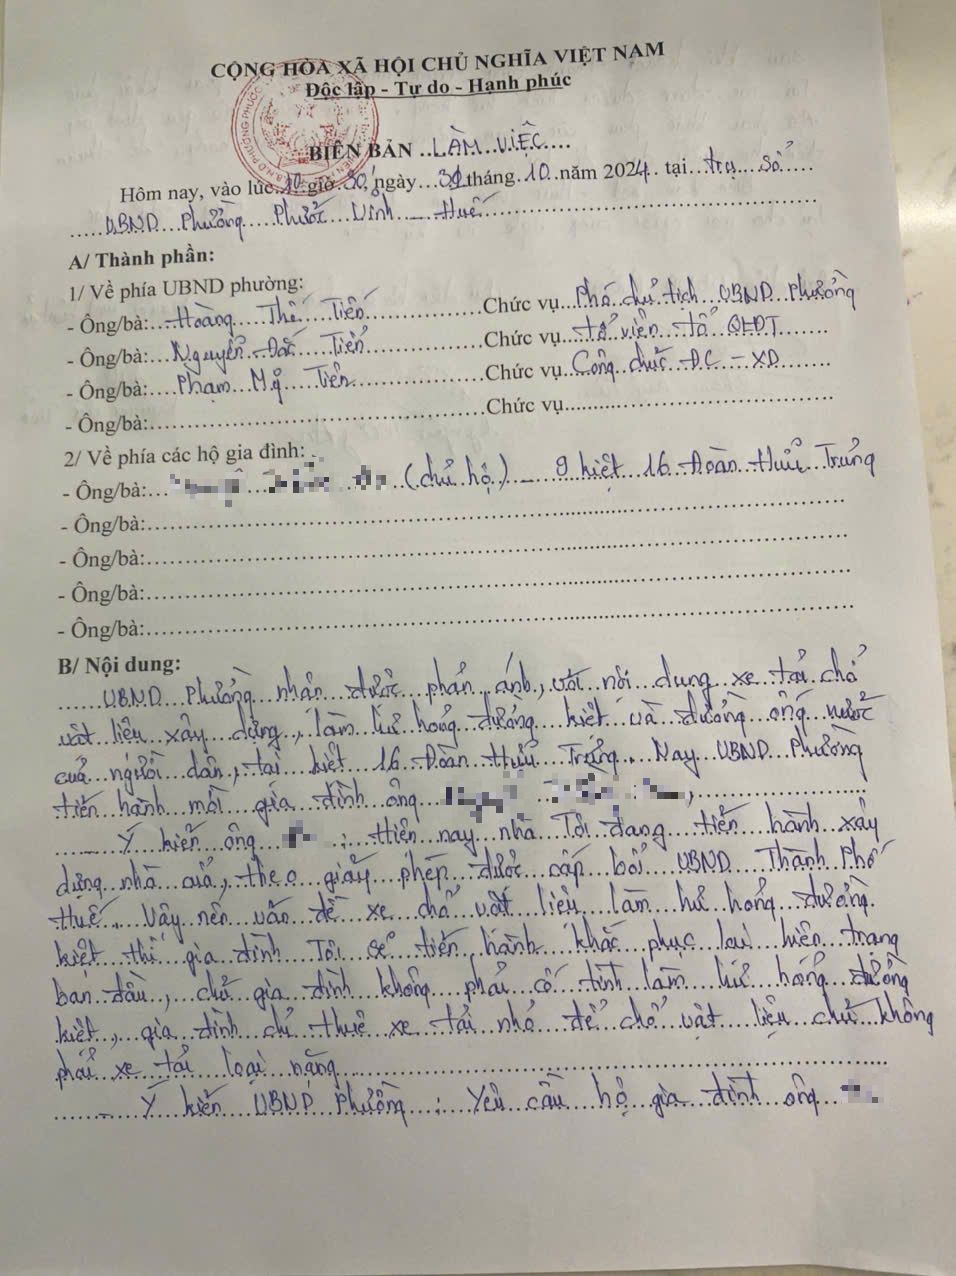 CỘNG HÒA XÃ HỘI CHỦ NGHĨA VIỆT NAM
Độc lập - Tự do - Hạnh phúc
BIÊN BẢN ..LÀM..VIỆC....
Hôm nay, vào lúc 10 giờ 30, ngày...31 tháng.10..năm 2024. tại..trụ sở
.....UBND..Phường...Phước Vĩnh - Huế
A/ Thành phần:
1/ Về phía UBND phường:
- Ông/bà:...Hoàng....Thế...Tiến....Chức vụ...Phó chủ tịch UBND Phường
- Ông/bà:...Nguyễn..Đắc...Tiến....Chức vụ..tổ viên tổ QLĐT
- Ông/bà:...Phạm...Mỹ...Tiên....Chức vụ..Công chức ĐC - XD
- Ông/bà:....Chức vụ....
2/ Về phía các hộ gia đình:
- Ông/bà:... (chủ hộ) - 9 kiệt 16 Đoàn Hữu Trưng
- Ông/bà:....
- Ông/bà:....
- Ông/bà:....
- Ông/bà:....
B/ Nội dung:
UBND Phường nhận được phản ánh, với nội dung xe tải chở
vật liệu xây dựng, làm hư hỏng đường kiệt và đường ống nước
của người dân, tại kiệt 16 Đoàn Hữu Trưng. Nay UBND Phường
tiến hành mời gia đình ông
- Ý kiến ông : Hiện nay nhà Tôi đang tiến hành xây
dựng nhà cửa, theo giấy phép được cấp bởi UBND Thành Phố
Huế. Vậy nên vấn đề xe chở vật liệu làm hư hỏng đường
kiệt thì gia đình Tôi sẽ tiến hành khắc phục lại hiện trạng
ban đầu, chứ gia đình không phải cố tình làm hư hỏng đường
kiệt, gia đình chỉ thuê xe tải nhỏ để chở vật liệu chứ không
phải xe tải loại nặng
- Ý kiến UBND Phường : Yêu cầu hộ gia đình ông